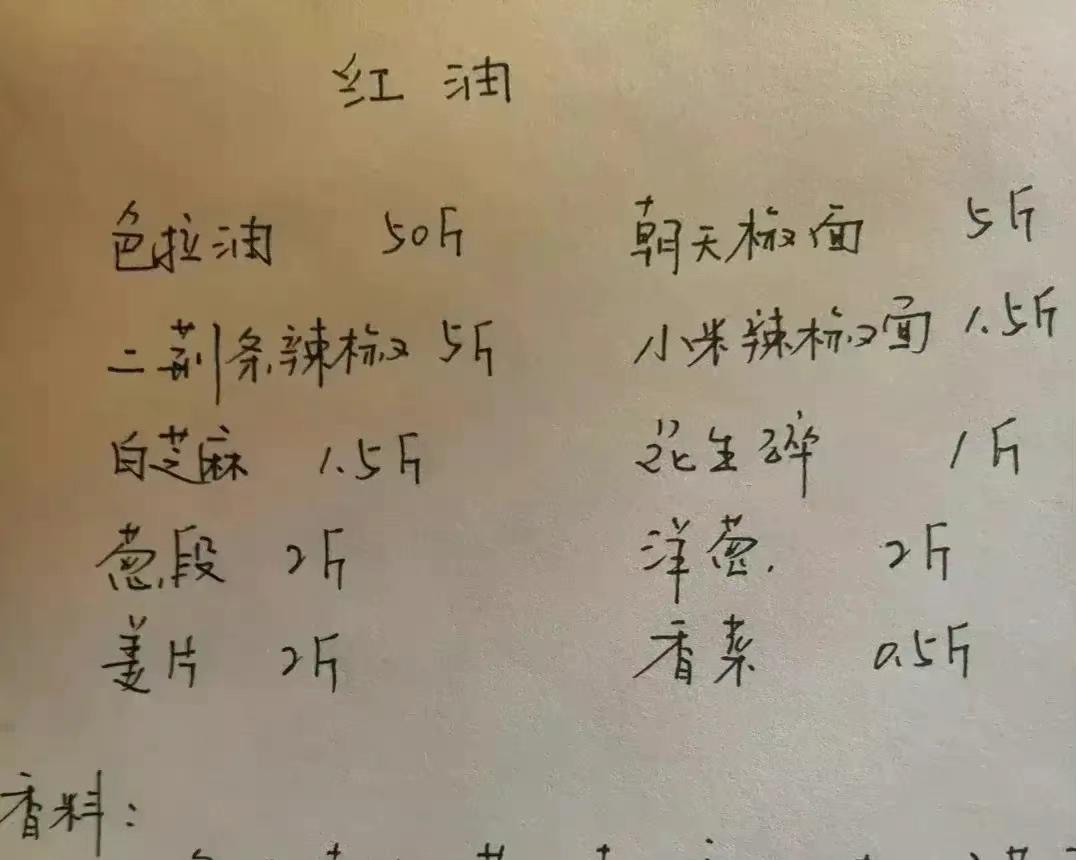 红油
色拉油 50斤 朝天椒面 5斤
二荆条辣椒 5斤 小米辣椒面 1.5斤
白芝麻 1.5斤 花生碎 1斤
葱段 2斤 洋葱 2斤
姜片 2斤 香菜 0.5斤
香料: